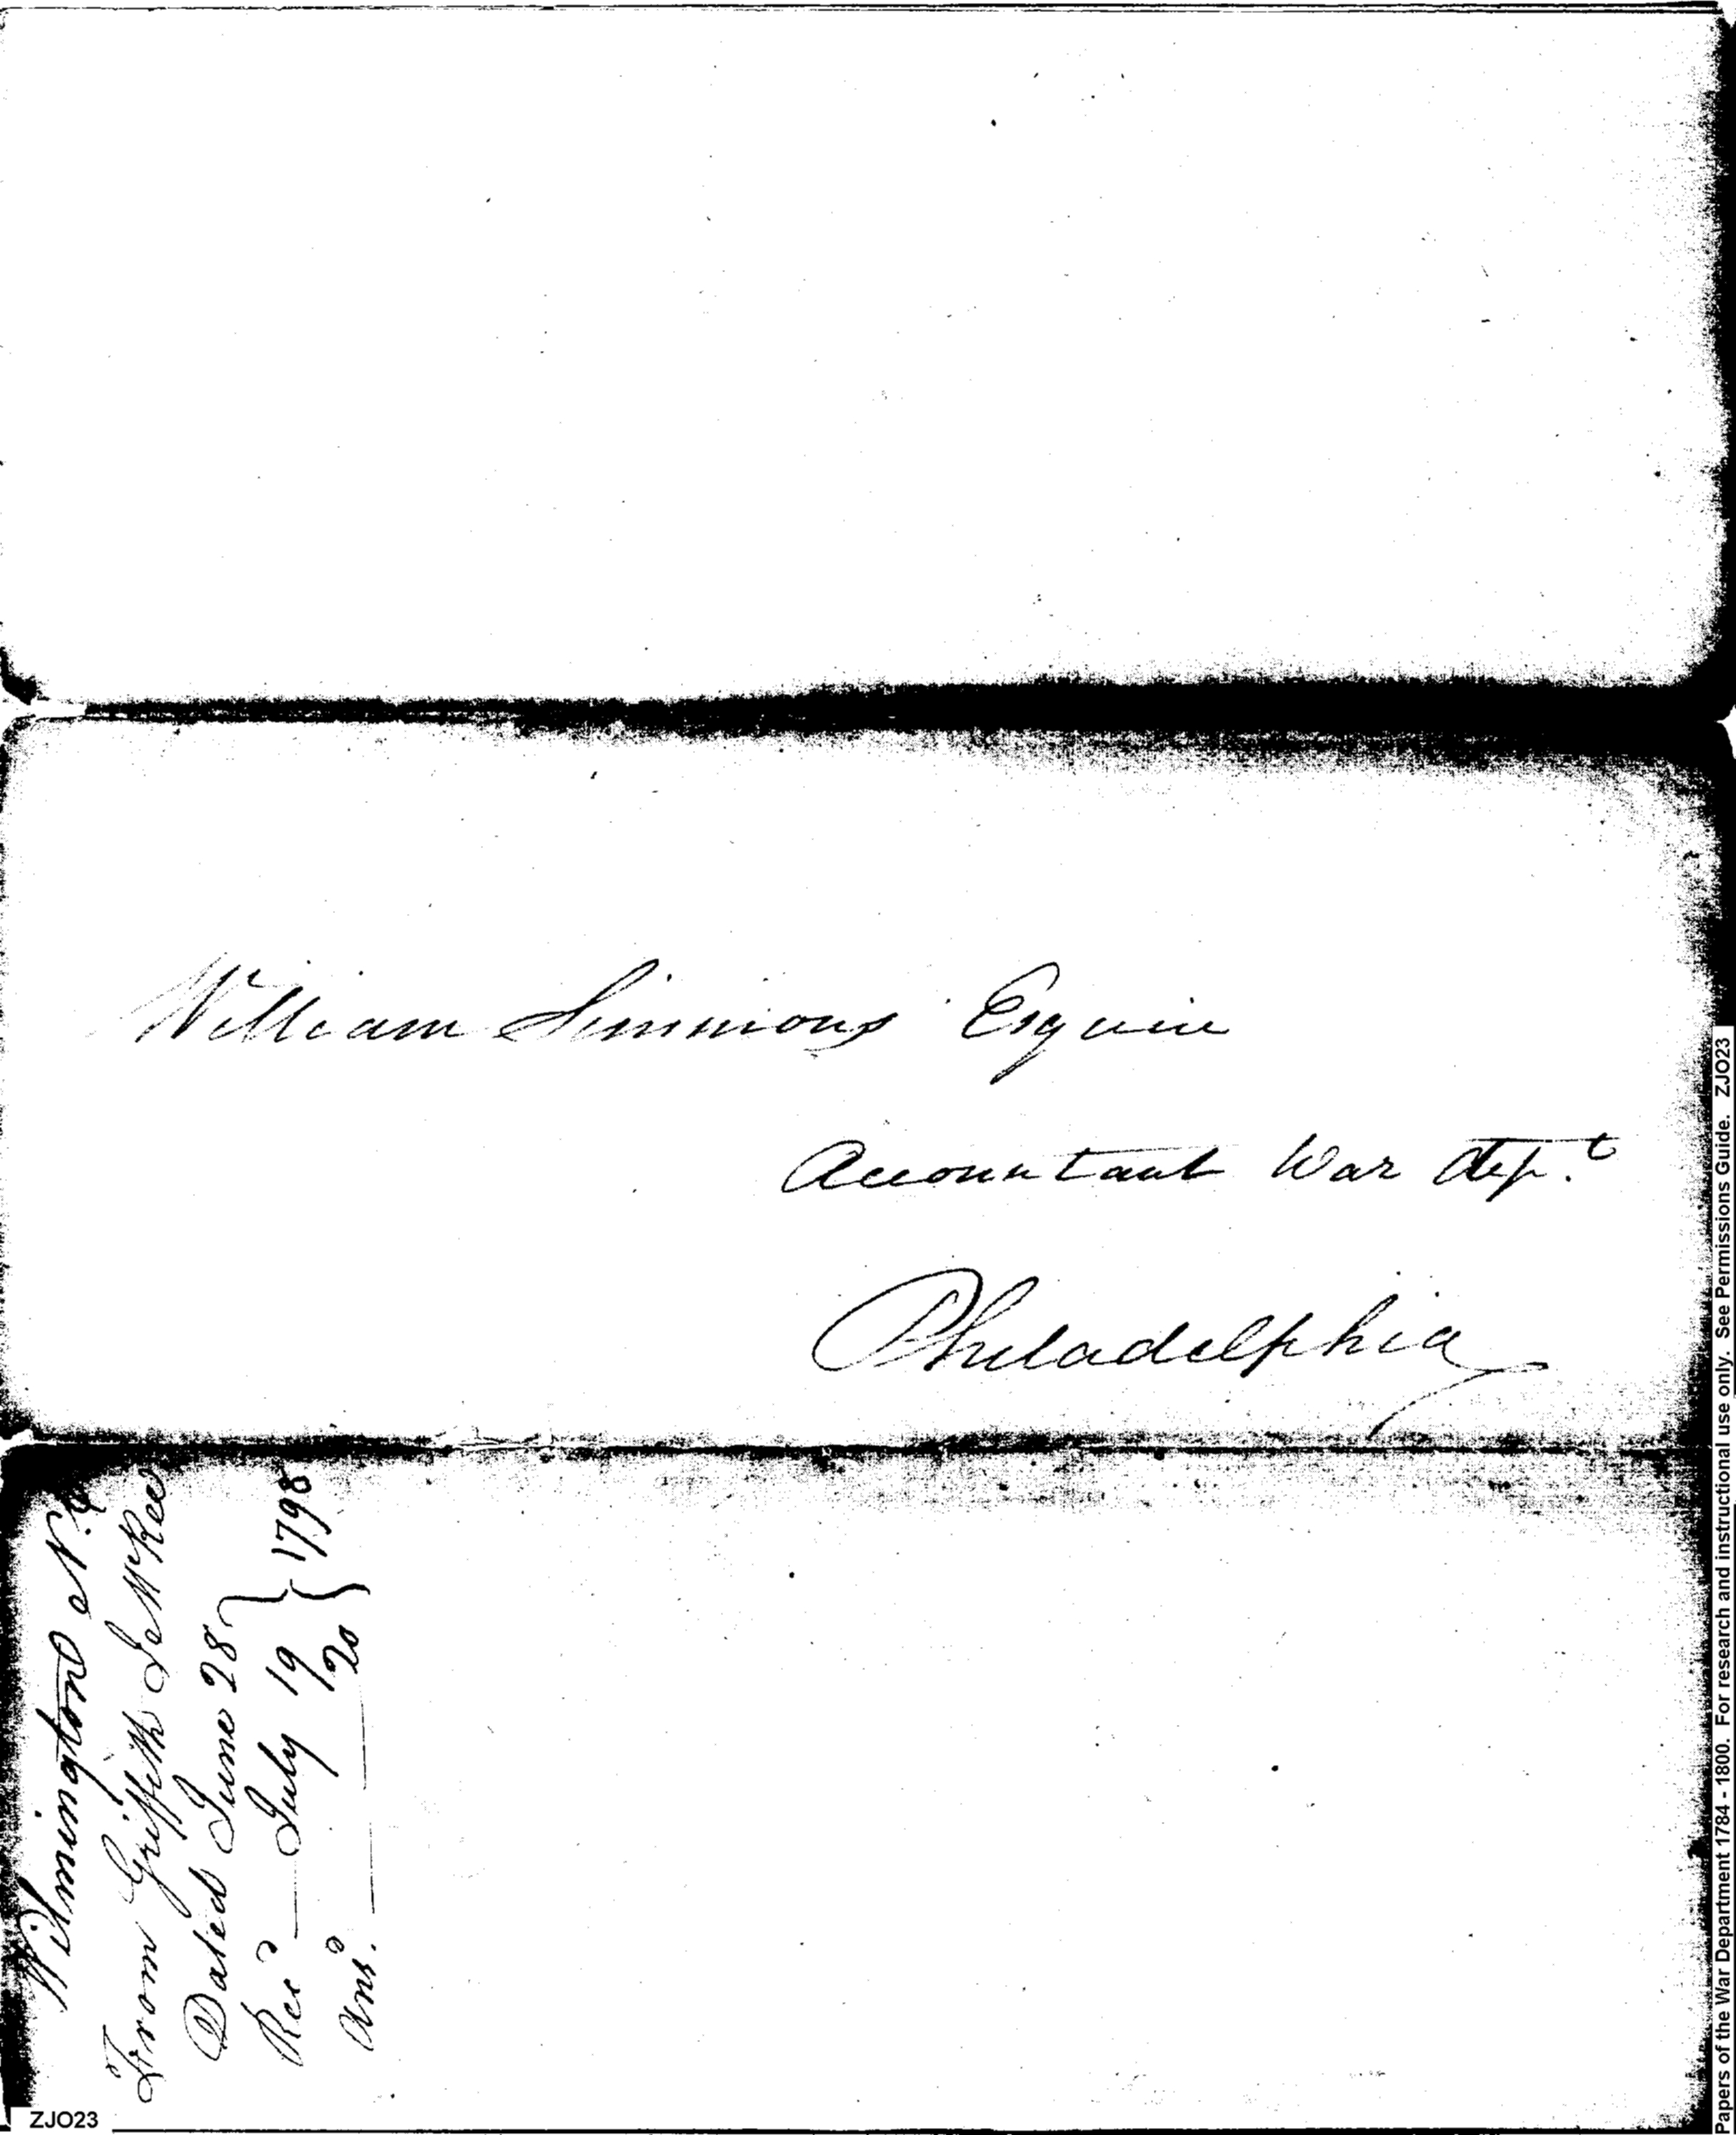 William Simmons Esquire
Accountant War dept.
Philadelphia
Wilmington N.C
From Griffith J McRee
Dated June 28
Recd — July 19
Ansd. — 20
1798
ZJO23
Papers of the War Department 1784 - 1800. For research and instructional use only. See Permissions Guide. ZJO23